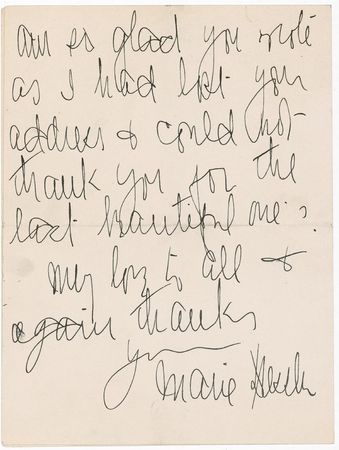 am so glad you wrote
as I had lost your
address & could not
thank you for the
last beautiful one.
My love to all &
again thanks
Marie